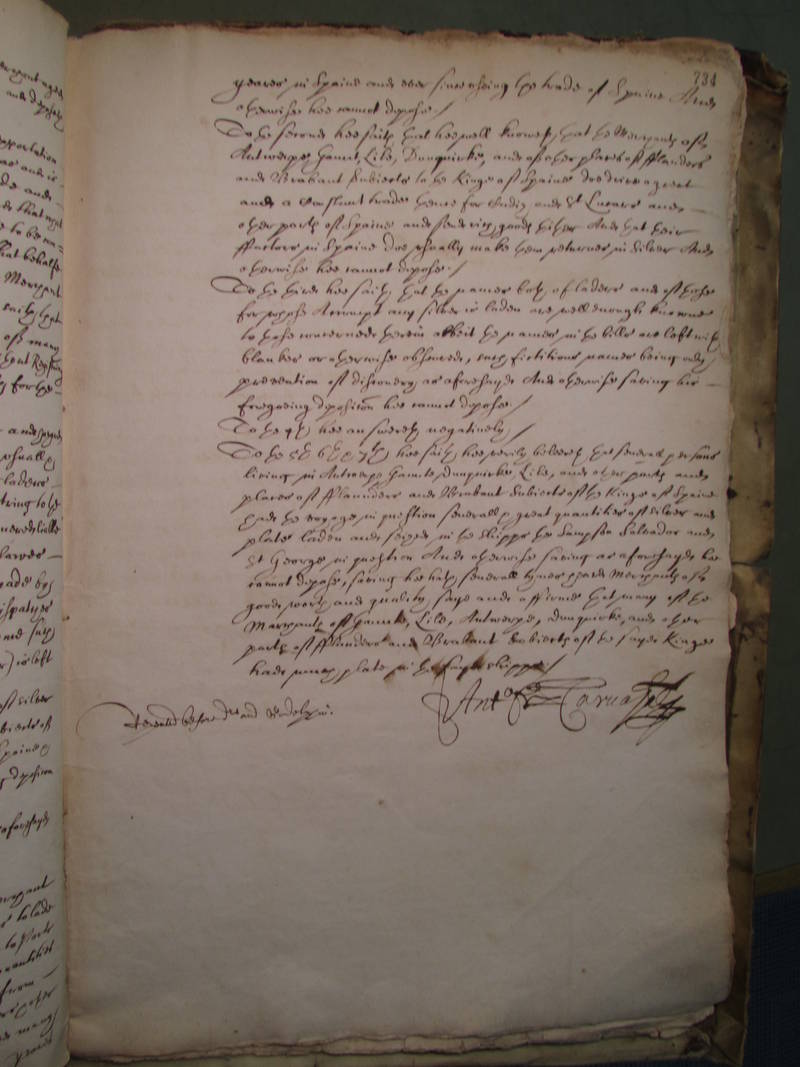 734
yeares in Spaine and ever since useing the trade of Spaine And
otherwise hee cannot depose./
To the second hee saith that hee well knoweth that the Merchants of
Antwerpe, Gaunt, Lile, Dunquirke, and other places of fflanders
and Brabant Subiects to the Kinge of Spaine doe drive a great
and a constant trade thence for Cadiz and St Lucars and
other parts of Spaine and send very goods thither And that their
ffactors in Spaine doe usually make them returnes in Silver And
otherwise hee cannot depose./
To the third hee saith that the names both of laders and of those
for whose Accompt any silver is laden are well enough knowne
to those concerned therein albeit the names in the bills are left with
blankes or otherwise obscured, such fictitious names being only
prevention of discovery as aforesayd And otherwise saving his
foregoeing deposicon hee cannot depose./
To the 4th hee answereth negatively/
To the 5th 6th 7th hee saith hee verily beleeveth that severall persons
living in Antwerpe Gaunte, Dunquirke, Lile, and other parts and
places of fflaunders and Brabant Subiects of the Kinge of Spaine
had the voyage in question severall great quantities of silver and
plate laden and seized in the shipps the Sampson Salvador and
St George in question And otherwise saving as aforesayd hee
cannot depose, saving hee hath severall tymes heard Merchants of
good worth and quality say and affirme that many of the
Merchants of Gaunte, Lile, Antwerpe, Dunquirke, and other
parts of fflanders and Brabant Subiects of the sayd Kinge
had much plate in the sayd shipps/
Repeated before Drs and
Anto